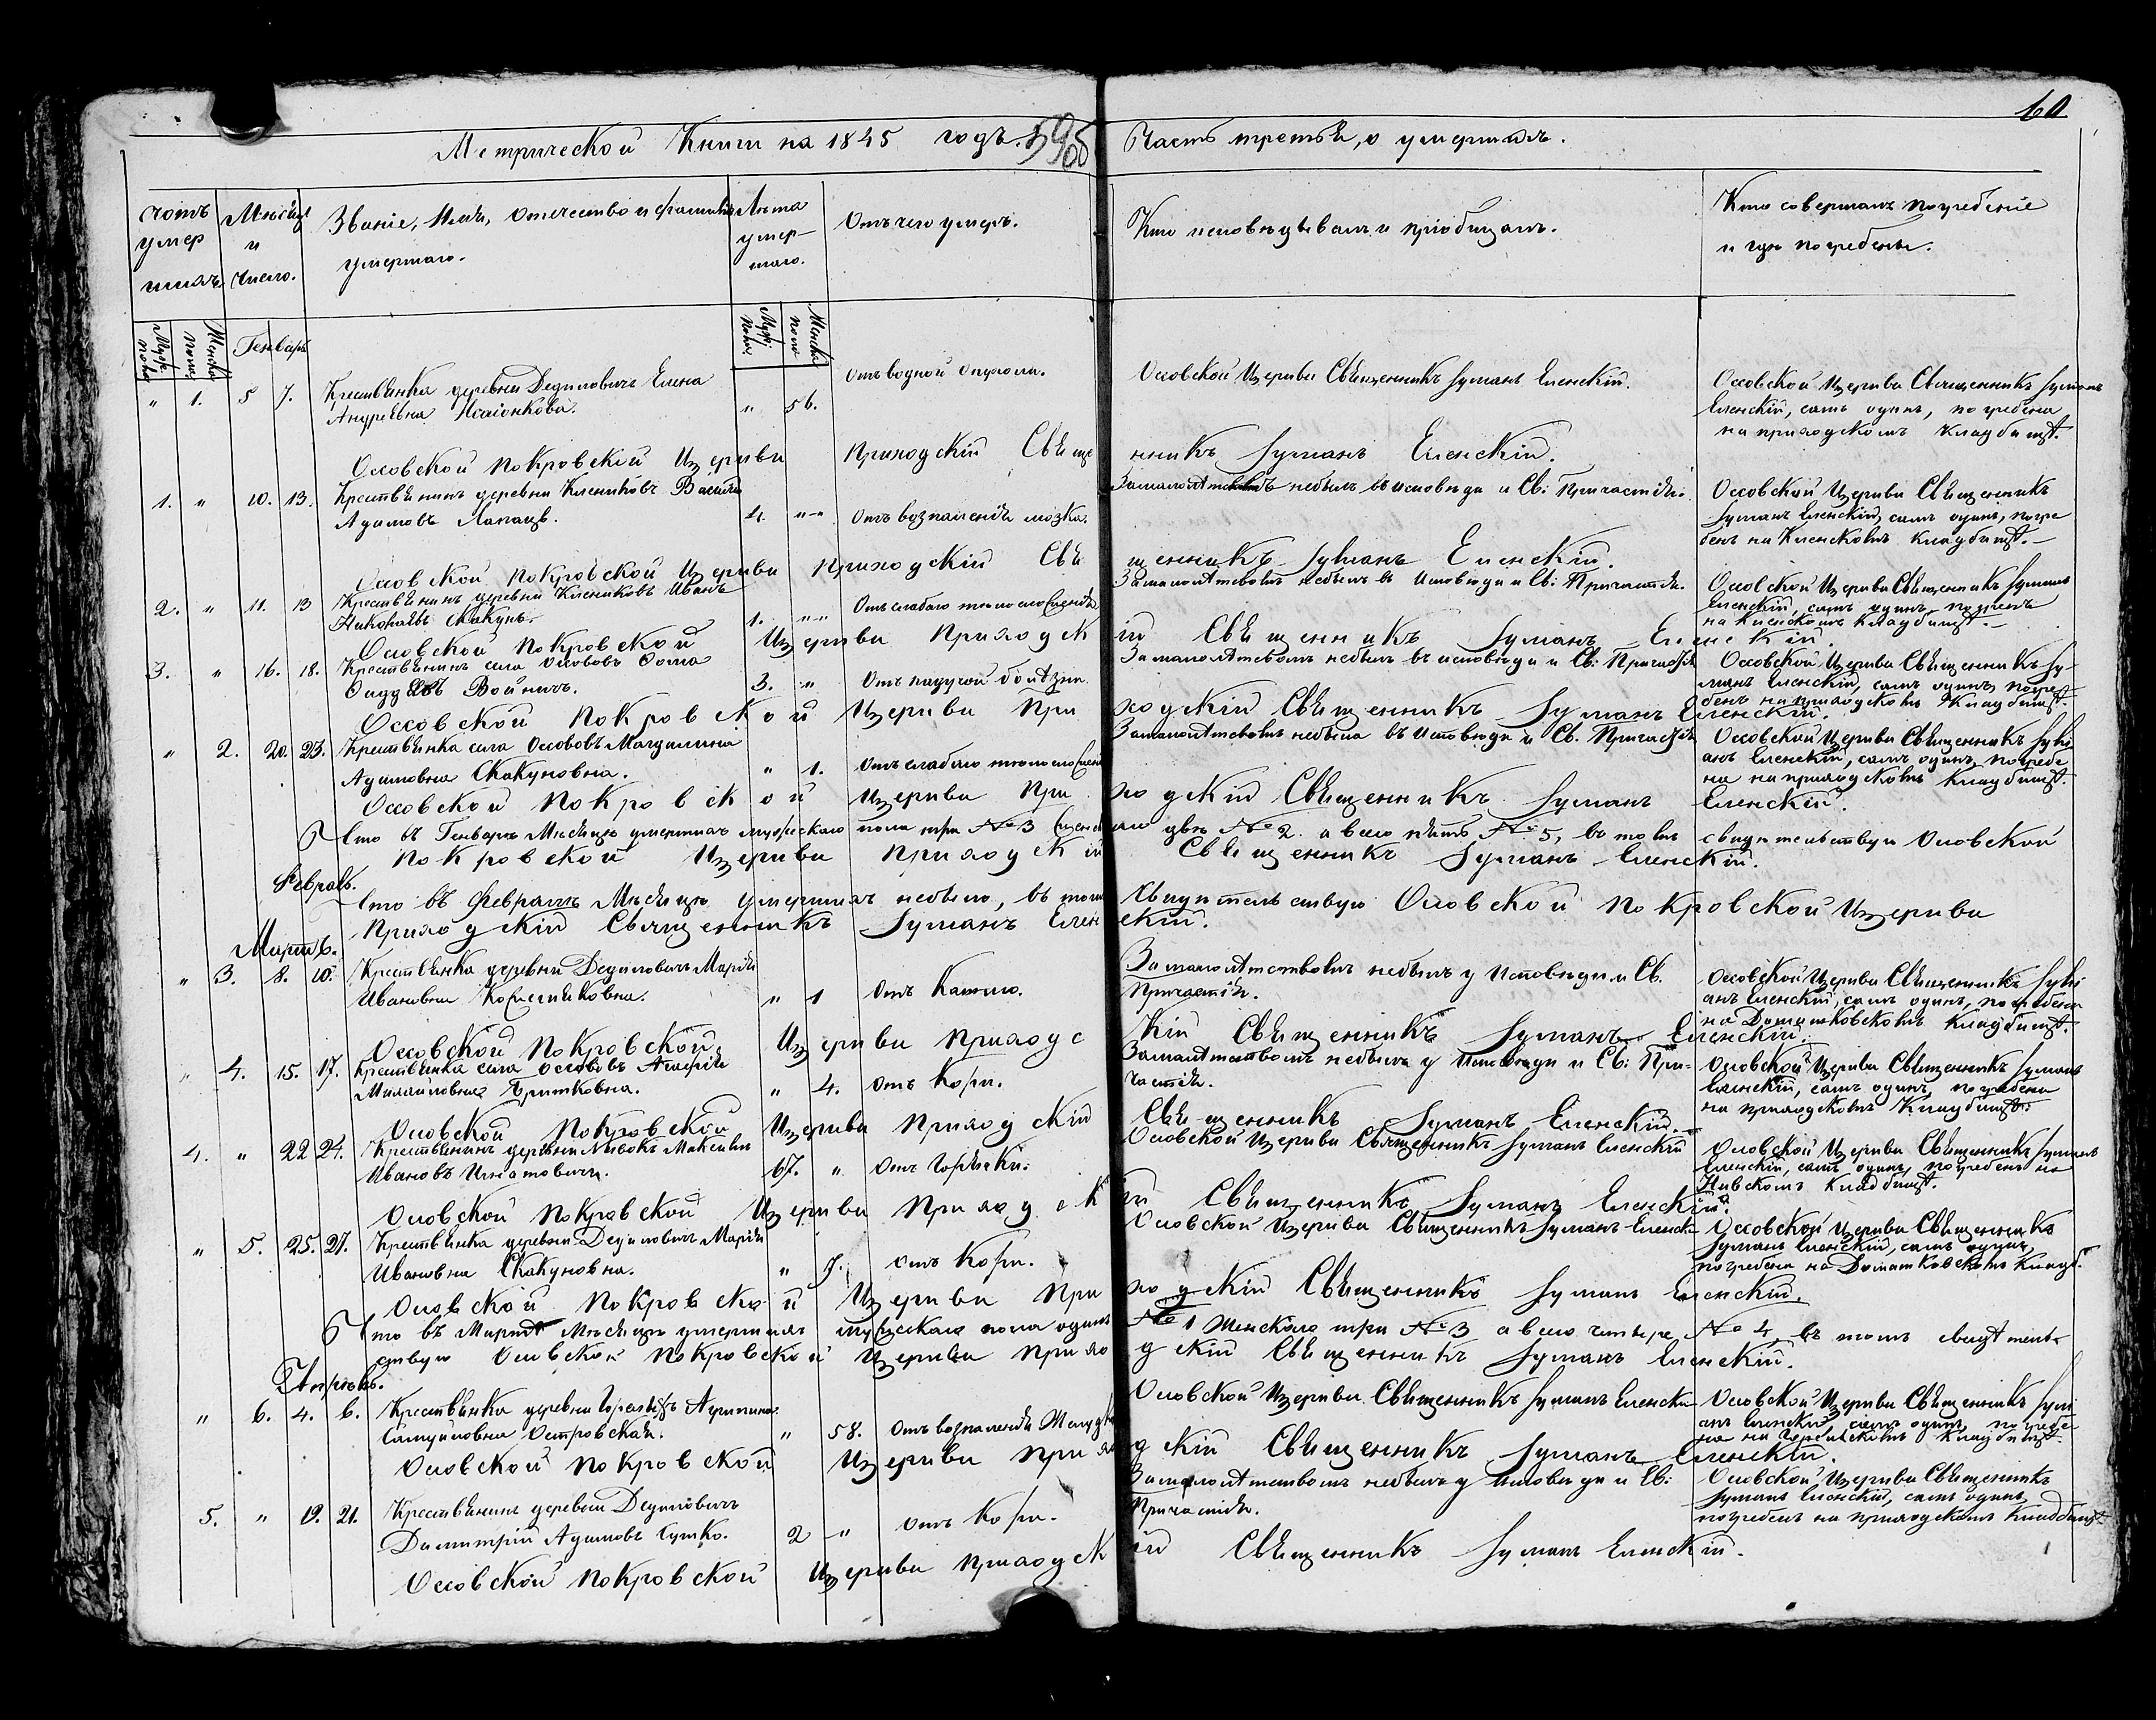 60
Метрической Книги на 1845 годъ. 59об
Часть третья, о умершихъ.
Счотъ умер шихъ
Мѣсяцъ и число.
Званіе, Имя, отечество и фамилія умершаго.
Лѣта умер- шаго.
Отъ чего умеръ.
Кто исповѣдывалъ и пріобщалъ.
Кто совершалъ погребеніе и гдѣ погребены.
Муж. пола
Женска пола
Генварь
Муж. пола
Женска пола
" 1. 5 7. Крестьянка деревни Дедиловичъ Елена
Андреевна
" 56.
Отъ водной опухоли.
Оссовской Церкви Священникъ Іуліанъ Еленскій.
Оссовской Церкви Священникъ Іуліанъ
Еленскій, самъ одинъ, погребена
на приходскомъ кладбищѣ.
Оссовской Покровской Церкви Приходскій Священникъ Іуліанъ Еленскій.
1. " 10. 13. Крестьянинъ деревни Клениковъ Василій
Адамовъ Лапацъ.
4. " "
Отъ возпаленія мозга.
За малолѣтствомъ небылъ въ исповѣди и Св: Причастія.
Оссовской Церкви Священникъ
Іуліанъ Еленскій, самъ одинъ, погре
бенъ на Кленсковъ кладбищѣ.
Оссовской Покровской Церкви Приходскій Священникъ Іуліанъ Еленскій.
2. " 11. 13 Крестьянинъ деревни Клениковъ Иванъ
Николаевъ Скакунъ.
1. " "
Отъ слабаго тѣлосложенія
За малолѣтствомъ небылъ въ исповѣди и Св: Причастія.
Оссовской Церкви Священникъ Іуліанъ
Еленскій, самъ одинъ, погребенъ
на Кленскомъ кладбищѣ.
Оссовской Покровской Церкви Приходскій Священникъ Іуліанъ Еленскій.
3. " 16. 18. Крестьянинъ села Оссововъ Фома
Фаддеевъ Войничъ.
3. "
Отъ падучой болѣзни.
За малолѣтствомъ небылъ въ исповѣди и Св: Причастія
Оссовской Церкви Священникъ Іу-
ліанъ Еленскій, самъ одинъ, погре
бенъ на приходсковъ Кладбищѣ.
Оссовской Покровской Церкви Приходскій Священникъ Іуліанъ Еленскій.
" 2. 20. 23. Крестьянка села Оссововъ Магдалина
Адамовна Скакуновна.
" 1.
Отъ слабаго тѣлосложен
За малолѣтствомъ небыла въ исповѣди и Св. Причастія
Оссовской Церкви Священникъ Іулі
анъ Еленскій, самъ одинъ, погребе
на на приходсковъ Кладбищѣ.
Оссовской Покровской Церкви Приходскій Священникъ Іуліанъ Еленскій.
Что въ Генварѣ Мѣсяцѣ умершихъ мужескаго пола три №3 женскаго двѣ №2. а всего пять №5, въ томъ свидѣтельствую Оссовской
Покровской Церкви Приходскій Священникъ Іуліанъ Еленскій.
Февраль.
Что въ Февралѣ Мѣсяцѣ умершихъ небыло, въ томъ Свидѣтельствую Оссовской Покровской Церкви
Приходскій Священникъ Іуліанъ Еленскій.
Мартъ.
" 3. 8. 10. Крестьянка деревни Дедиловичъ Марія
Ивановна
" 1
Отъ Кашлю.
За малолѣтствомъ небылъ у Исповѣди и Св.
Причастія.
Оссовской Церкви Священникъ Іулі
анъ Еленскій, самъ одинъ, погребена
на Домашковсковъ Кладбищѣ.
Оссовской Покровской Церкви Приходскій Священникъ Іуліанъ Еленскій.
" 4. 15. 17. Крестьянка села Оссововъ Агафія
Михайловна
" 4.
Отъ Кори.
За малолѣтствомъ небыла у Исповѣди и Св: При-
частія.
Оссовской Церкви Священникъ Іуліанъ
Еленскій, самъ одинъ, погребена
на приходсковъ Кладбищѣ.
Оссовской Покровской Церкви Приходскій Священникъ Іуліанъ Еленскій.
4. " 22 24. Крестьянинъ деревни Нивокъ Максимъ
Ивановъ Игнатовичъ.
67. "
Отъ Горячки.
Оссовской Церкви Священникъ Іуліанъ Еленскій
Оссовской Церкви Священникъ Іуліанъ
Еленскій, самъ одинъ, погребенъ на
Нивскомъ кладбищѣ.
Оссовской Покровской Церкви Приходскій Священникъ Іуліанъ Еленскій.
" 5. 25. 27. Крестьянка деревни Дедиловичъ Марія
Ивановна Скакуновна.
" 7.
Отъ Кори.
Оссовской Церкви Священникъ Іуліанъ Еленск-
Оссовской Церкви Священникъ
Іуліанъ Еленскій, самъ одинъ,
погребена на Домашковсковъ Кладб.
Оссовской Покровской Церкви Приходскій Священникъ Іуліанъ Еленскій.
Что въ Мартѣ Мѣсяцѣ умершихъ мужескаго пола одинъ №1 женскаго три №3 а всего четыре №4, въ томъ свидѣтель-
ствую Оссовской Покровской Церкви Приходскій Священникъ Іуліанъ Еленскій.
Апрѣль.
" 6. 4. 6. Крестьянка деревни Агрипина
Самуиловна Островская.
" 58.
Отъ возпаленія Желудка
Оссовской Церкви Священникъ Іуліанъ Еленски-
Оссовской Церкви Священникъ Іулі
анъ Еленскій, самъ одинъ, погребе
на на кладбищѣ.
Оссовской Покровской Церкви Приходскій Священникъ Іуліанъ Еленскій.
5. " 19. 21. Крестьянинъ деревни Дедиловичъ
Димитрій Адамовъ Сушко.
2 "
Отъ Кори.
За малолѣтствомъ небылъ у Исповѣди и Св:
Причастія.
Оссовской Церкви Священникъ
Іуліанъ Еленскій, самъ одинъ,
погребенъ на приходскомъ Кладбищѣ
Оссовской Покровской Церкви Приходскій Священникъ Іуліанъ Еленскій.